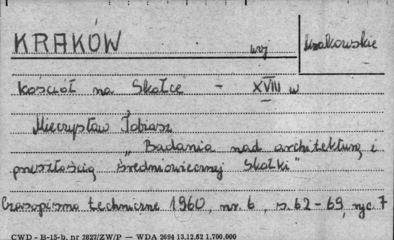 KRAKÓW woj krakowskie
Kościół na Skałce - XVIII w
Mieczysław Tobiasz
„Badania nad architekturą i
przeszłością średniowiecznej Skałki"
Czasopismo techniczne 1960, nr. 6, s. 62-69, ryc. 7
CWD - B-15-b, nr 2827/ZW/P — WDA 2694 13.12.62 1.700.000